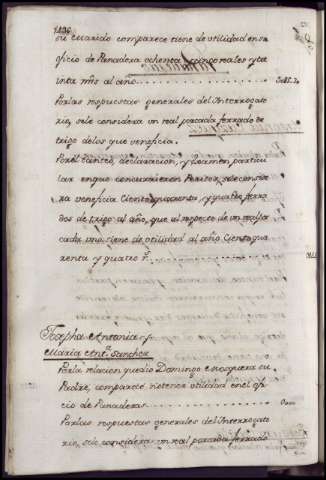 su Marido comparece tiene de utilidad en su
oficio de Panadera ochenta y cinco reales y tre
inta mrs al año
Por las respuestas generales del Interrogato
rio, se le considera un real por cada ferrado de
trigo de los que veneficia.
Por el tanteo, declaracion, y examen particu
lar en que concurrieron Peritos, se le conside
ra veneficia Ciento quarenta, y quatro ferra
dos de trigo al año, que al respecto de un real por
cada uno tiene de utilidad al año Ciento qua
renta y quatro rs
Josepha Antonia y
Maria Anta Sanchez
Por la relacion que dio Domingo su
Padre, comparece no tener utilidad en el ofi
cio de Panaderas
Por las respuestas generales del Interrogato
rio, se le considera un real por cada ferrado